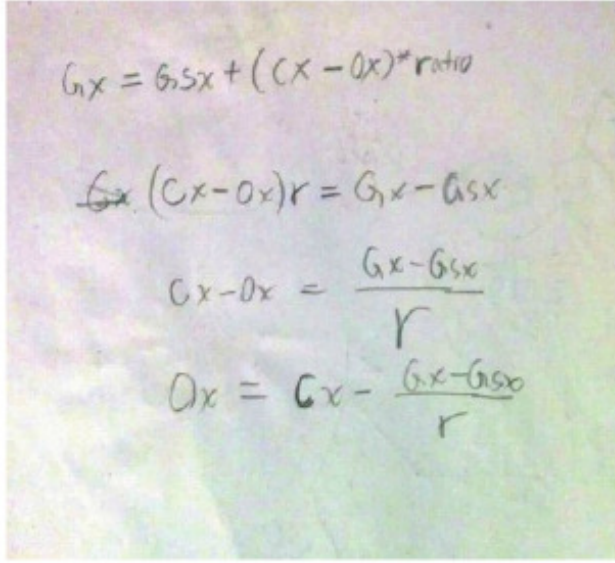 Gx = Gsx + (Cx - Ox)*ratio
(Cx-Ox)r = Gx - Gsx
Cx-Ox = \frac{Gx-Gsx}{r}
Ox = Cx - \frac{Gx-Gsx}{r}